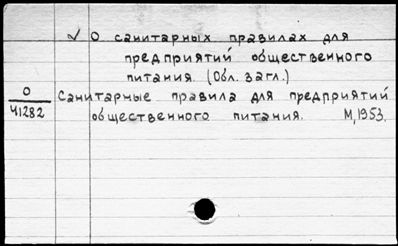 ✓ О санитарных правилах для
предприятий общественного
питания. (Обл. загл.)
О
41282
Санитарные правила для предприятий
общественного питания. М, 1953.